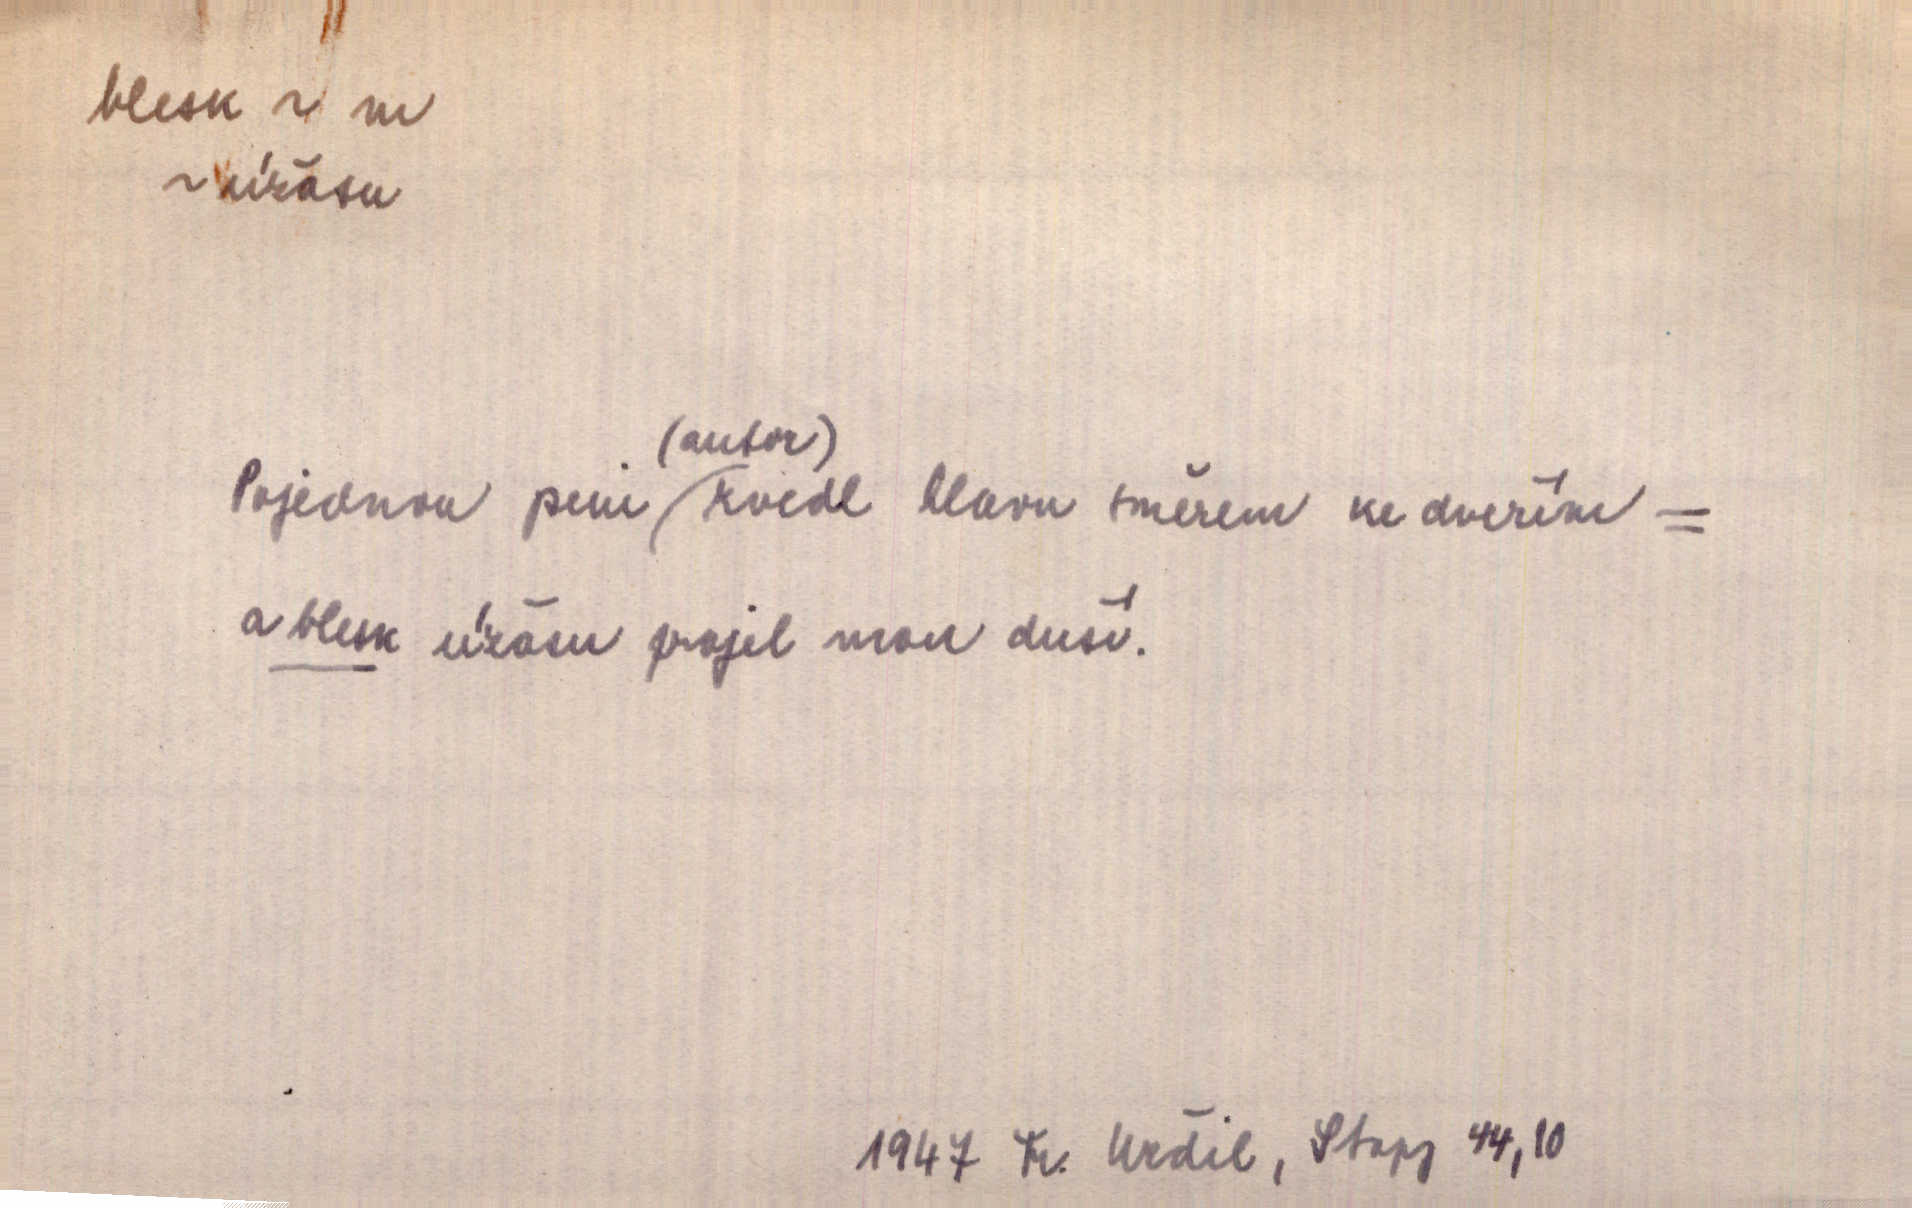 blesk ~ m
~ úžasu
(autor)
Pojednou pán zvedl hlavu směrem ke dveřím =
a blesk úžasu projel mou duší.
1947 Fr. Kožík, Stopy 44,10